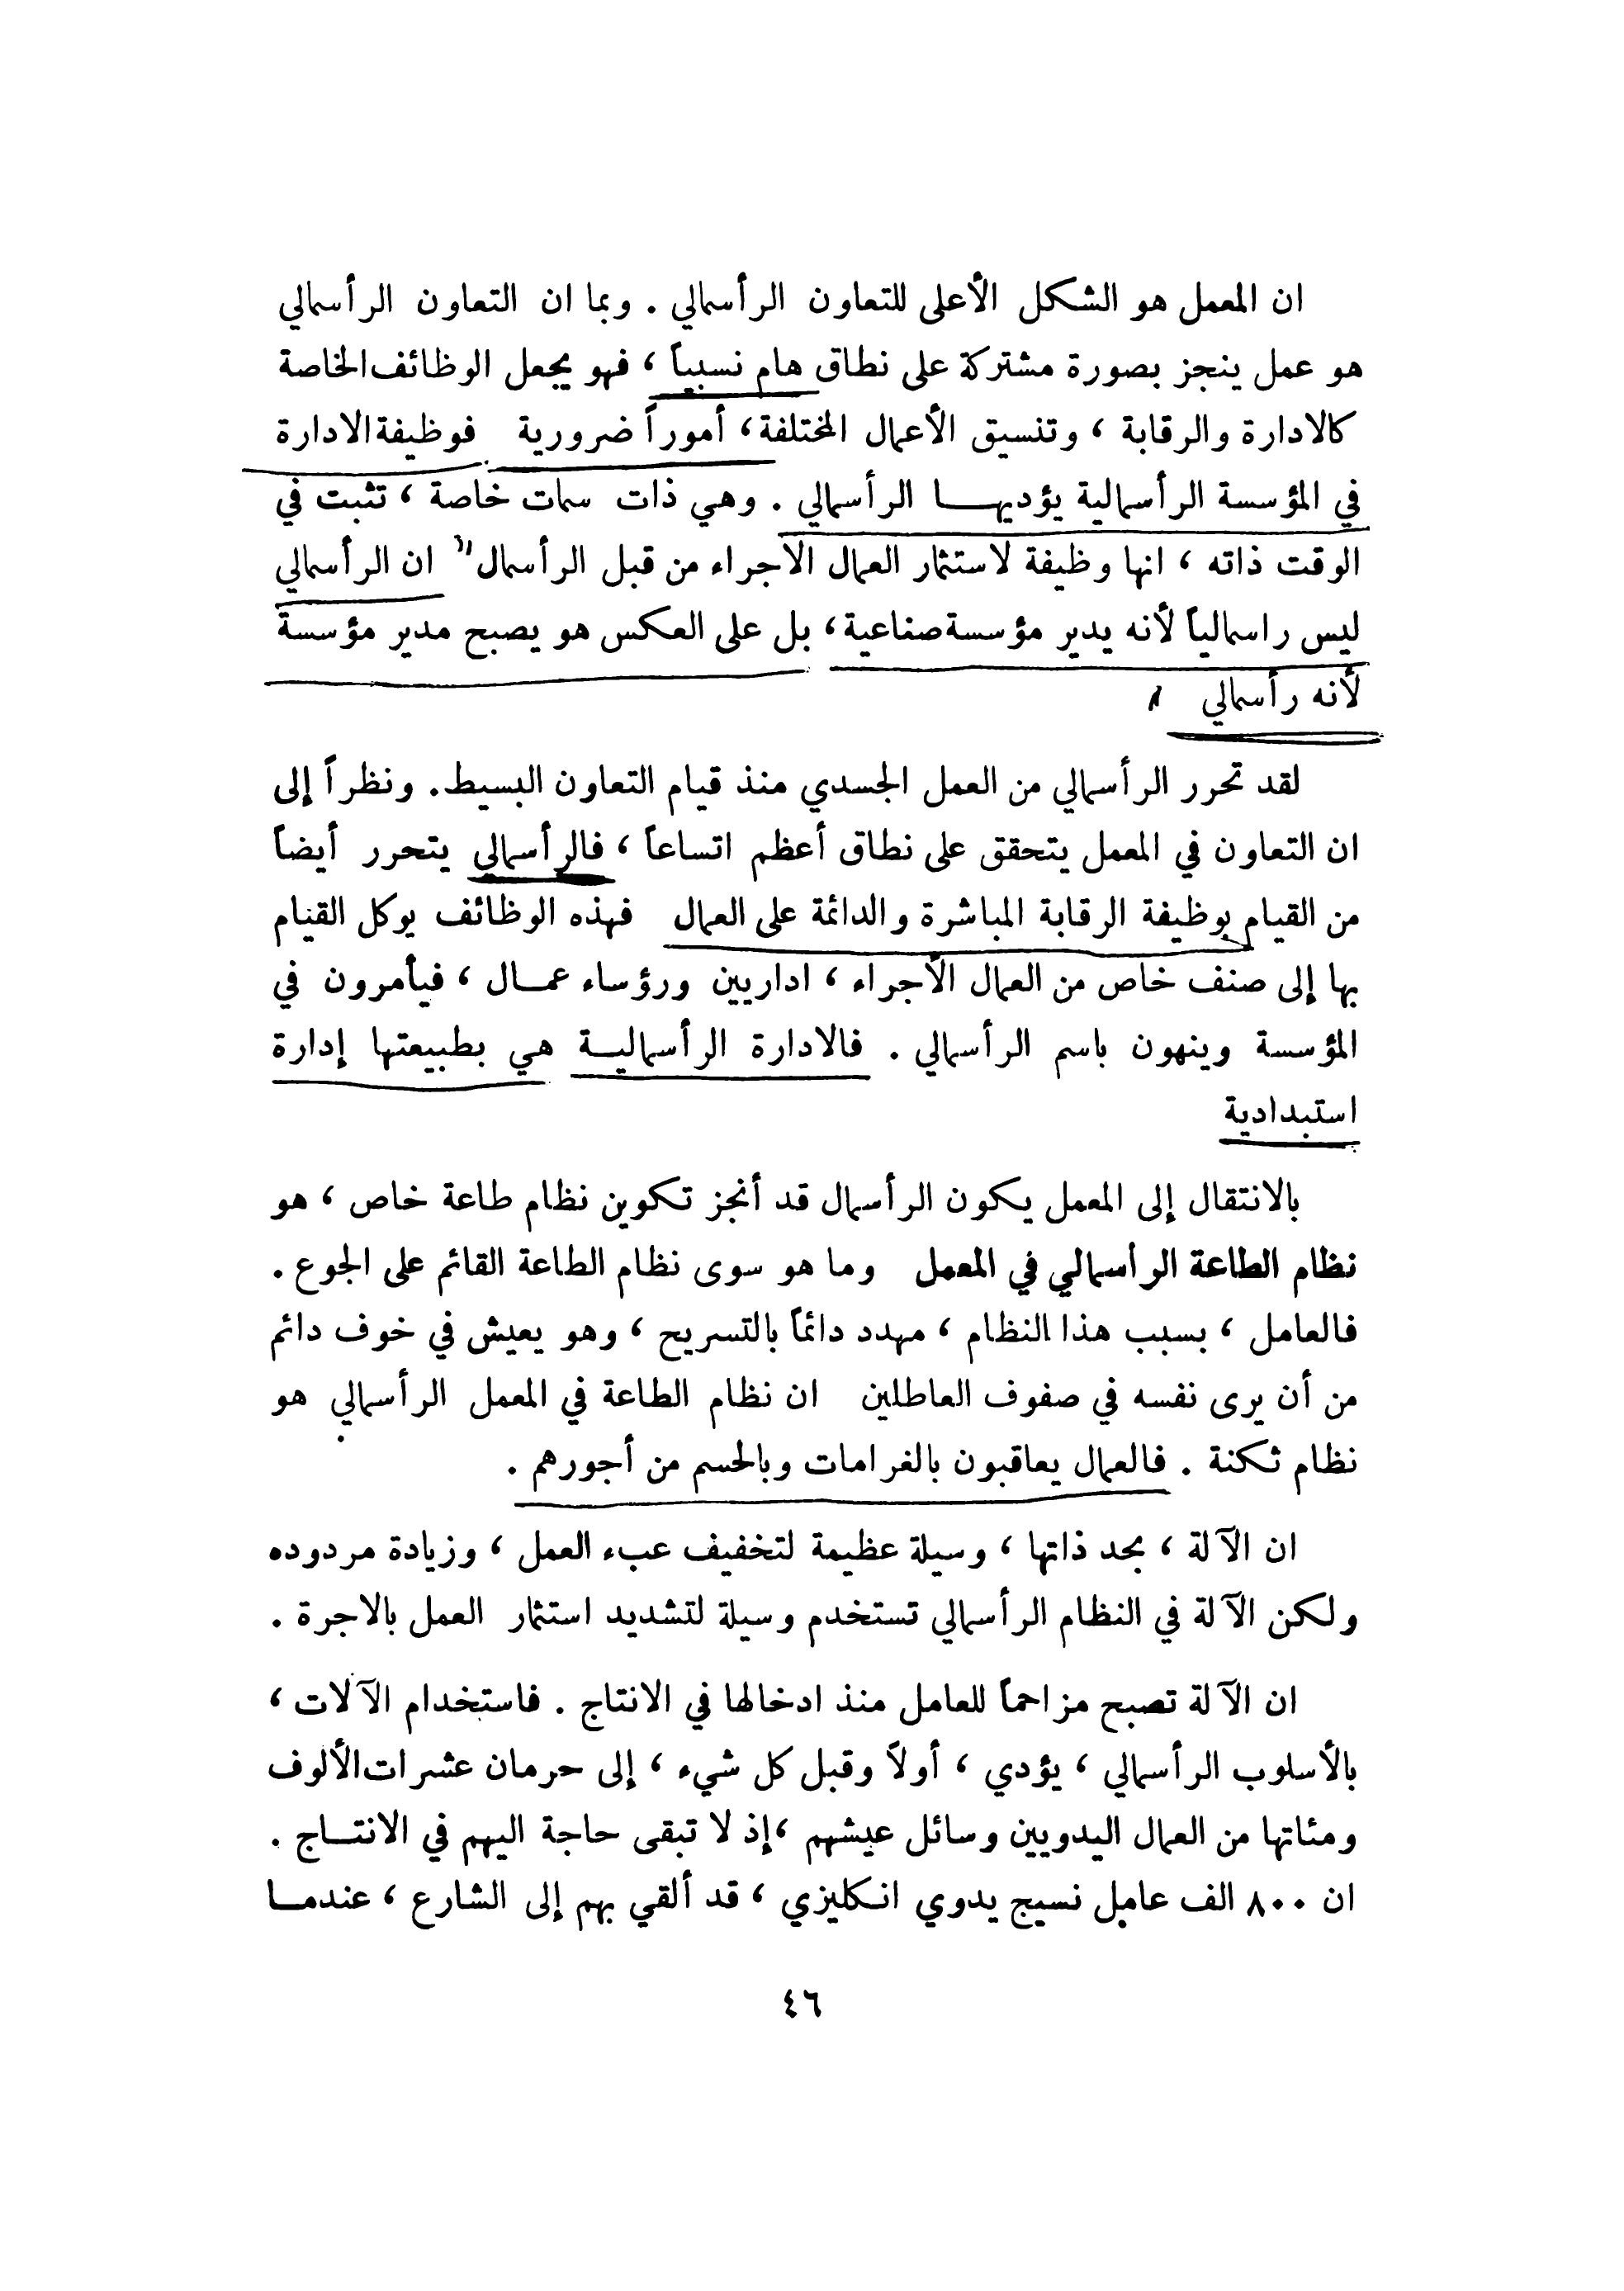 ان المعمل هو الشكل الأعلى للتعاون الرأسمالي . وبما ان التعاون الرأسمالي
هو عمل ينجز بصورة مشتركة على نطاق هام نسبياً ، فهو يجعل الوظائف الخاصة
كالادارة والرقابة ، وتنسيق الأعمال المختلفة ، أموراً ضرورية فوظيفة الادارة
في المؤسسة الرأسمالية يؤديهـا الرأسمالي . وهي ذات سمات خاصة ، تثبت في
الوقت ذاته ، انها وظيفة لاستثمار العمال الأجراء من قبل الرأسمال " ان الرأسمالي
ليس راسمالياً لأنه يدير مؤسسة صناعية ، بل على العكس هو يصبح مدير مؤسسة
لأنه رأسمالي "
لقد تحرر الرأسمالي من العمل الجسدي منذ قيام التعاون البسيط . ونظراً إلى
ان التعاون في المعمل يتحقق على نطاق أعظم اتساعاً ، فالرأسمالي يتحرر أيضاً
من القيام بوظيفة الرقابة المباشرة والدائمة على العمال فهذه الوظائف يوكل القيام
بها إلى صنف خاص من العمال الأجراء ، اداريين ورؤساء عمـال ، فيأمرون في
المؤسسة وينهون باسم الرأسمالي . فالادارة الرأسماليـة هي بطبيعتها إدارة
استبدادية
بالانتقال إلى المعمل يكون الرأسمال قد أنجز تكوين نظام طاعة خاص ، هو
نظام الطاعة الرأسمالي في المعمل وما هو سوى نظام الطاعة القائم على الجوع .
فالعامل ، بسبب هذا النظام ، مهدد دائماً بالتسريح ، وهو يعيش في خوف دائم
من أن يرى نفسه في صفوف العاطلين ان نظام الطاعة في المعمل الرأسمالي هو
نظام ثكنة . فالعمال يعاقبون بالغرامات وبالحسم من أجورهم .
ان الآلة ، بحد ذاتها ، وسيلة عظيمة لتخفيف عبء العمل ، وزيادة مردوده
ولكن الآلة في النظام الرأسمالي تستخدم وسيلة لتشديد استثمار العمل بالاجرة .
ان الآلة تصبح مزاحماً للعامل منذ ادخالها في الانتاج . فاستخدام الآلات ،
بالأسلوب الرأسمالي ، يؤدي ، أولاً وقبل كل شيء ، إلى حرمان عشرات الألوف
ومئاتها من العمال اليدويين وسائل عيشهم ، إذ لا تبقى حاجة اليهم في الانتـاج .
ان ٨٠٠ الف عامل نسيج يدوي انكليزي ، قد ألقي بهم إلى الشارع ، عندمـا
٤٦